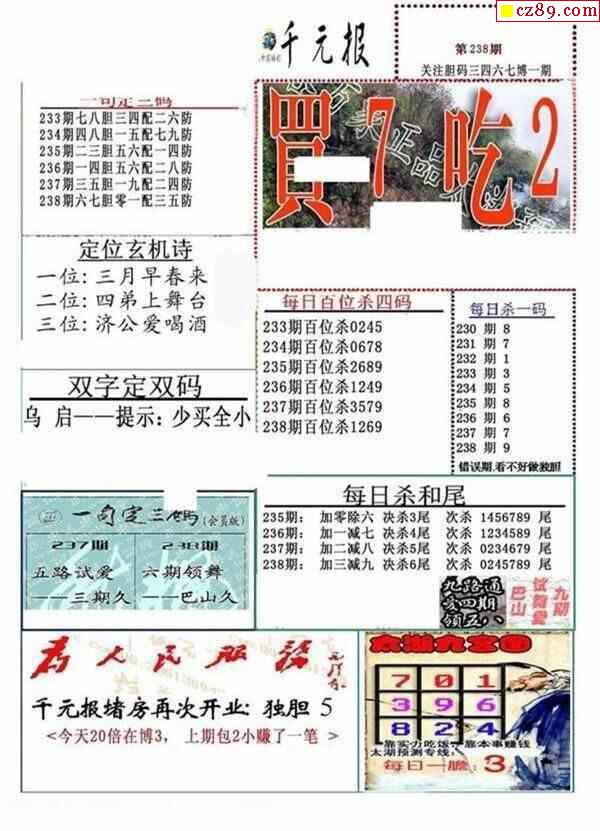 cz89.com
千元报
第238期
关注胆码三四六七博一期
一句定三码
233期七八胆三四配二六防
234期四八胆一五配七九防
235期二三胆五六配一四防
236期一四胆五六配二八防
237期三五胆一九配二四防
238期六七胆零一配三五防
買7吃2
定位玄机诗
一位:三月早春来
二位:四弟上舞台
三位:济公爱喝酒
每日百位杀四码
233期百位杀0245
234期百位杀0678
235期百位杀2689
236期百位杀1249
237期百位杀3579
238期百位杀1269
每日杀一码
230 期 8
231 期 7
232 期 1
233 期 3
234 期 5
235 期 8
236 期 6
237 期 7
238 期 9
错误期,看不好做独胆
双字定双码
乌 启——提示:少买全小
一句定三码(会员版)
237期
五路试爱
——三期久
238期
六期领舞
——巴山久
每日杀和尾
235期: 加零除六 决杀3尾 次杀 1456789 尾
236期: 加一减七 决杀4尾 次杀 1234589 尾
237期: 加二减八 决杀5尾 次杀 0234679 尾
238期: 加三减九 决杀6尾 次杀 0245789 尾
九路通
爱四期
领五八
试舞爱九期
巴山
为人民服务
千元报堵房再次开业:独胆 5
<今天20倍在博3, 上期包2小赚了一笔 >
太湖九宫图
7 0 1
3 9 6
8 2 4
靠实力吃饭 靠本事赚钱
太湖预测专线:
每日一胆:3